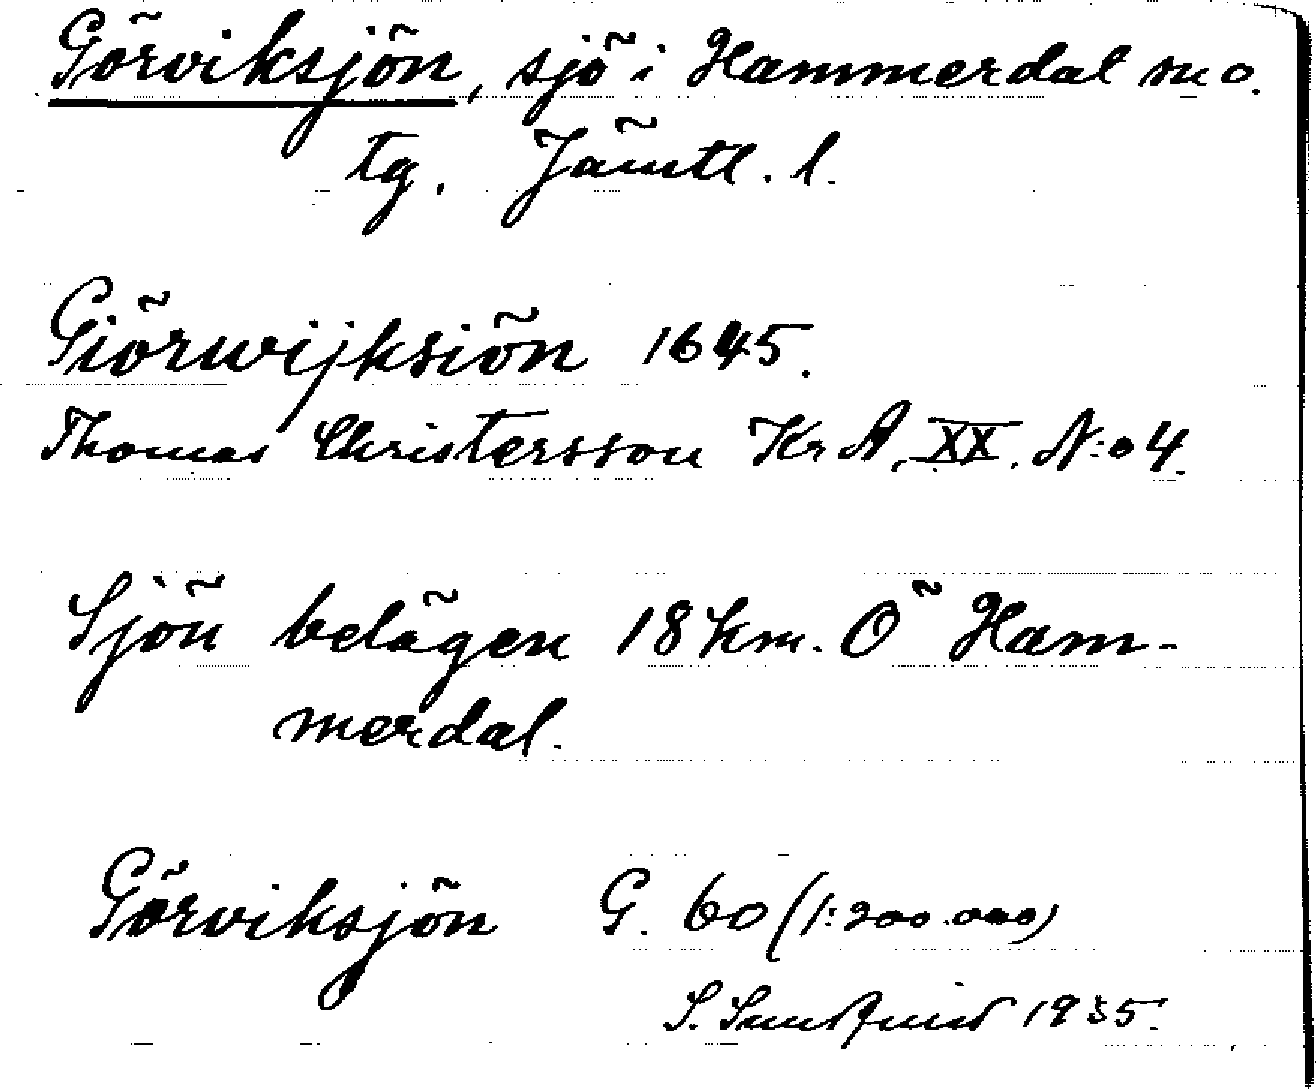 Görviksjön, sjö i Hammerdal sn o.
tg. Jämtl. l.
Giörwijksiön 1645.
Thomas Christersson KrA. XX. N:o 4.
Sjön belägen 18 km. Ö Ham-
merdal.
Görviksjön G. 60 (1:200.000)
S. Sundquist 1935.